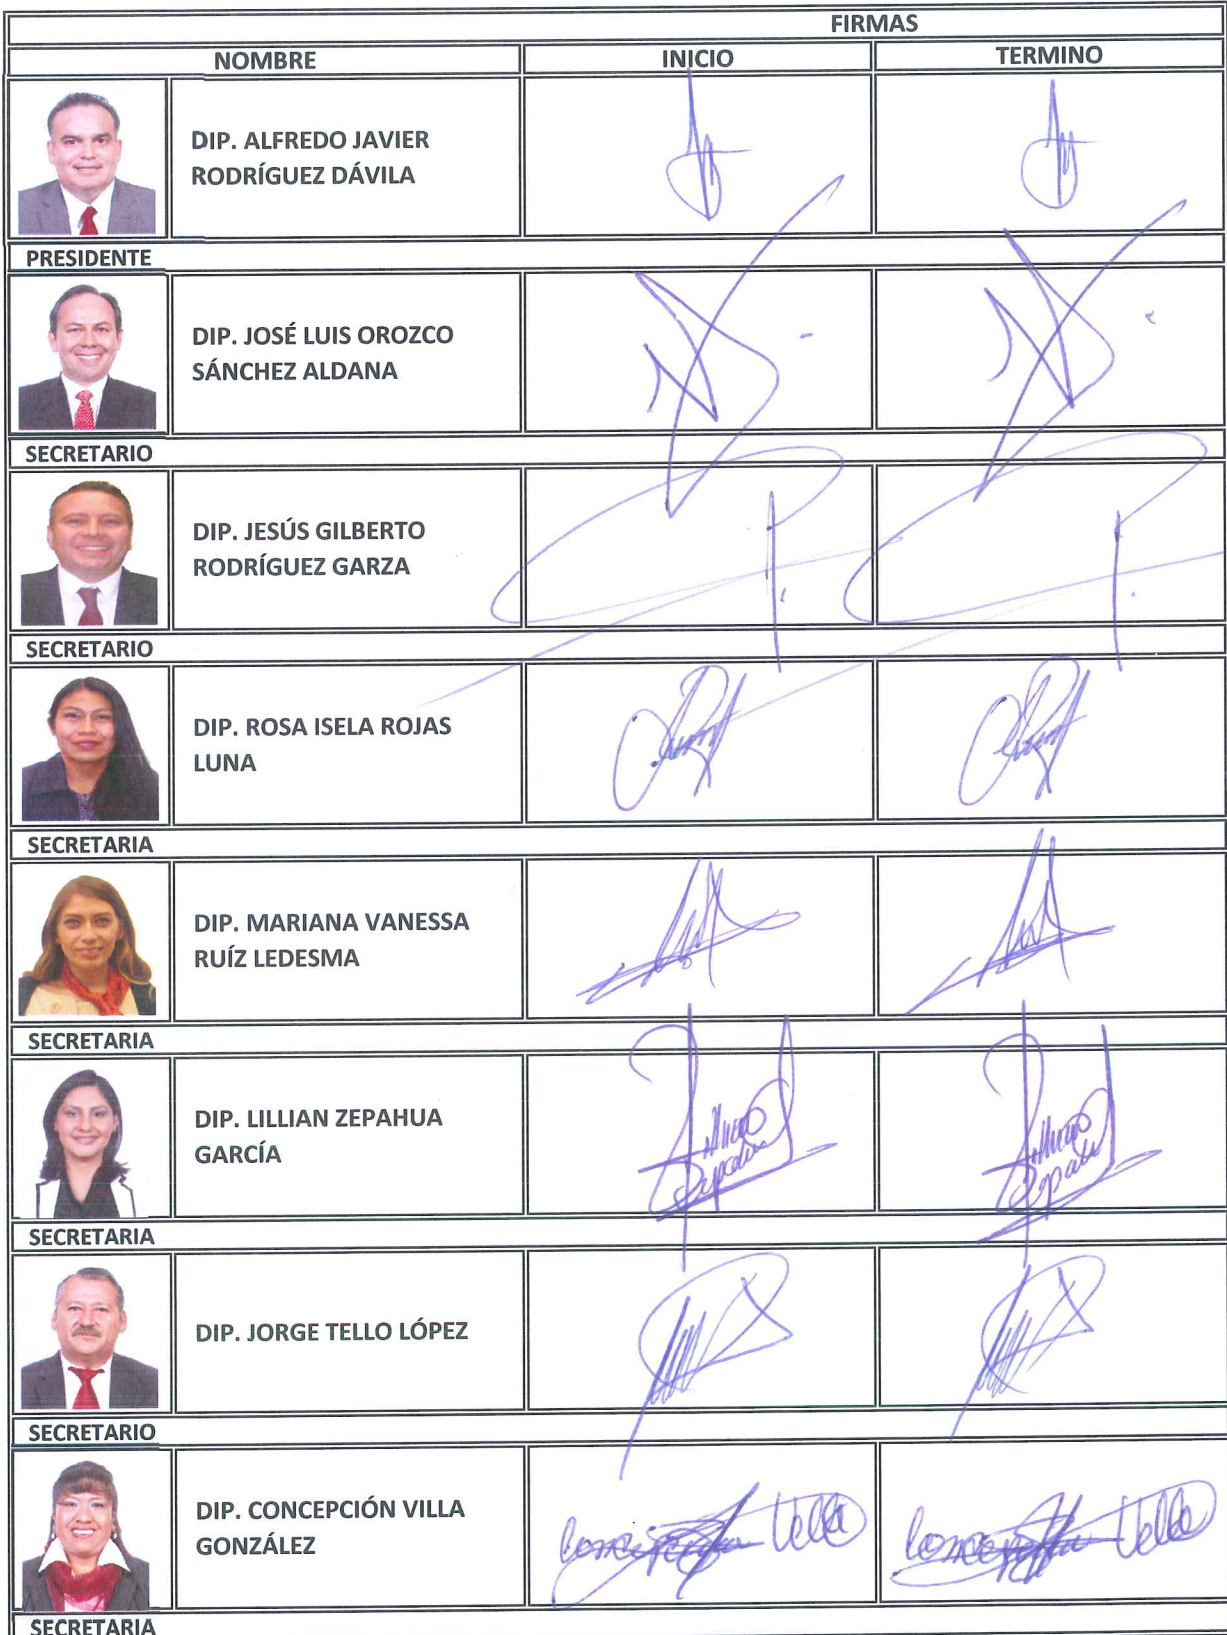 FIRMAS
NOMBRE INICIO TERMINO
DIP. ALFREDO JAVIER
RODRÍGUEZ DÁVILA
PRESIDENTE
DIP. JOSÉ LUIS OROZCO
SÁNCHEZ ALDANA
SECRETARIO
DIP. JESÚS GILBERTO
RODRÍGUEZ GARZA
SECRETARIO
DIP. ROSA ISELA ROJAS
LUNA
SECRETARIA
DIP. MARIANA VANESSA
RUÍZ LEDESMA
SECRETARIA
DIP. LILLIAN ZEPAHUA
GARCÍA
SECRETARIA
DIP. JORGE TELLO LÓPEZ
SECRETARIO
DIP. CONCEPCIÓN VILLA
GONZÁLEZ
SECRETARIA